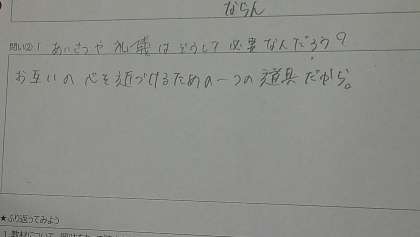 ならん
問い② 1 あいさつや礼儀はどうして必要なんだろう?
お互いの心を近づけるための一つの道具だから。
★ふり返ってみよう